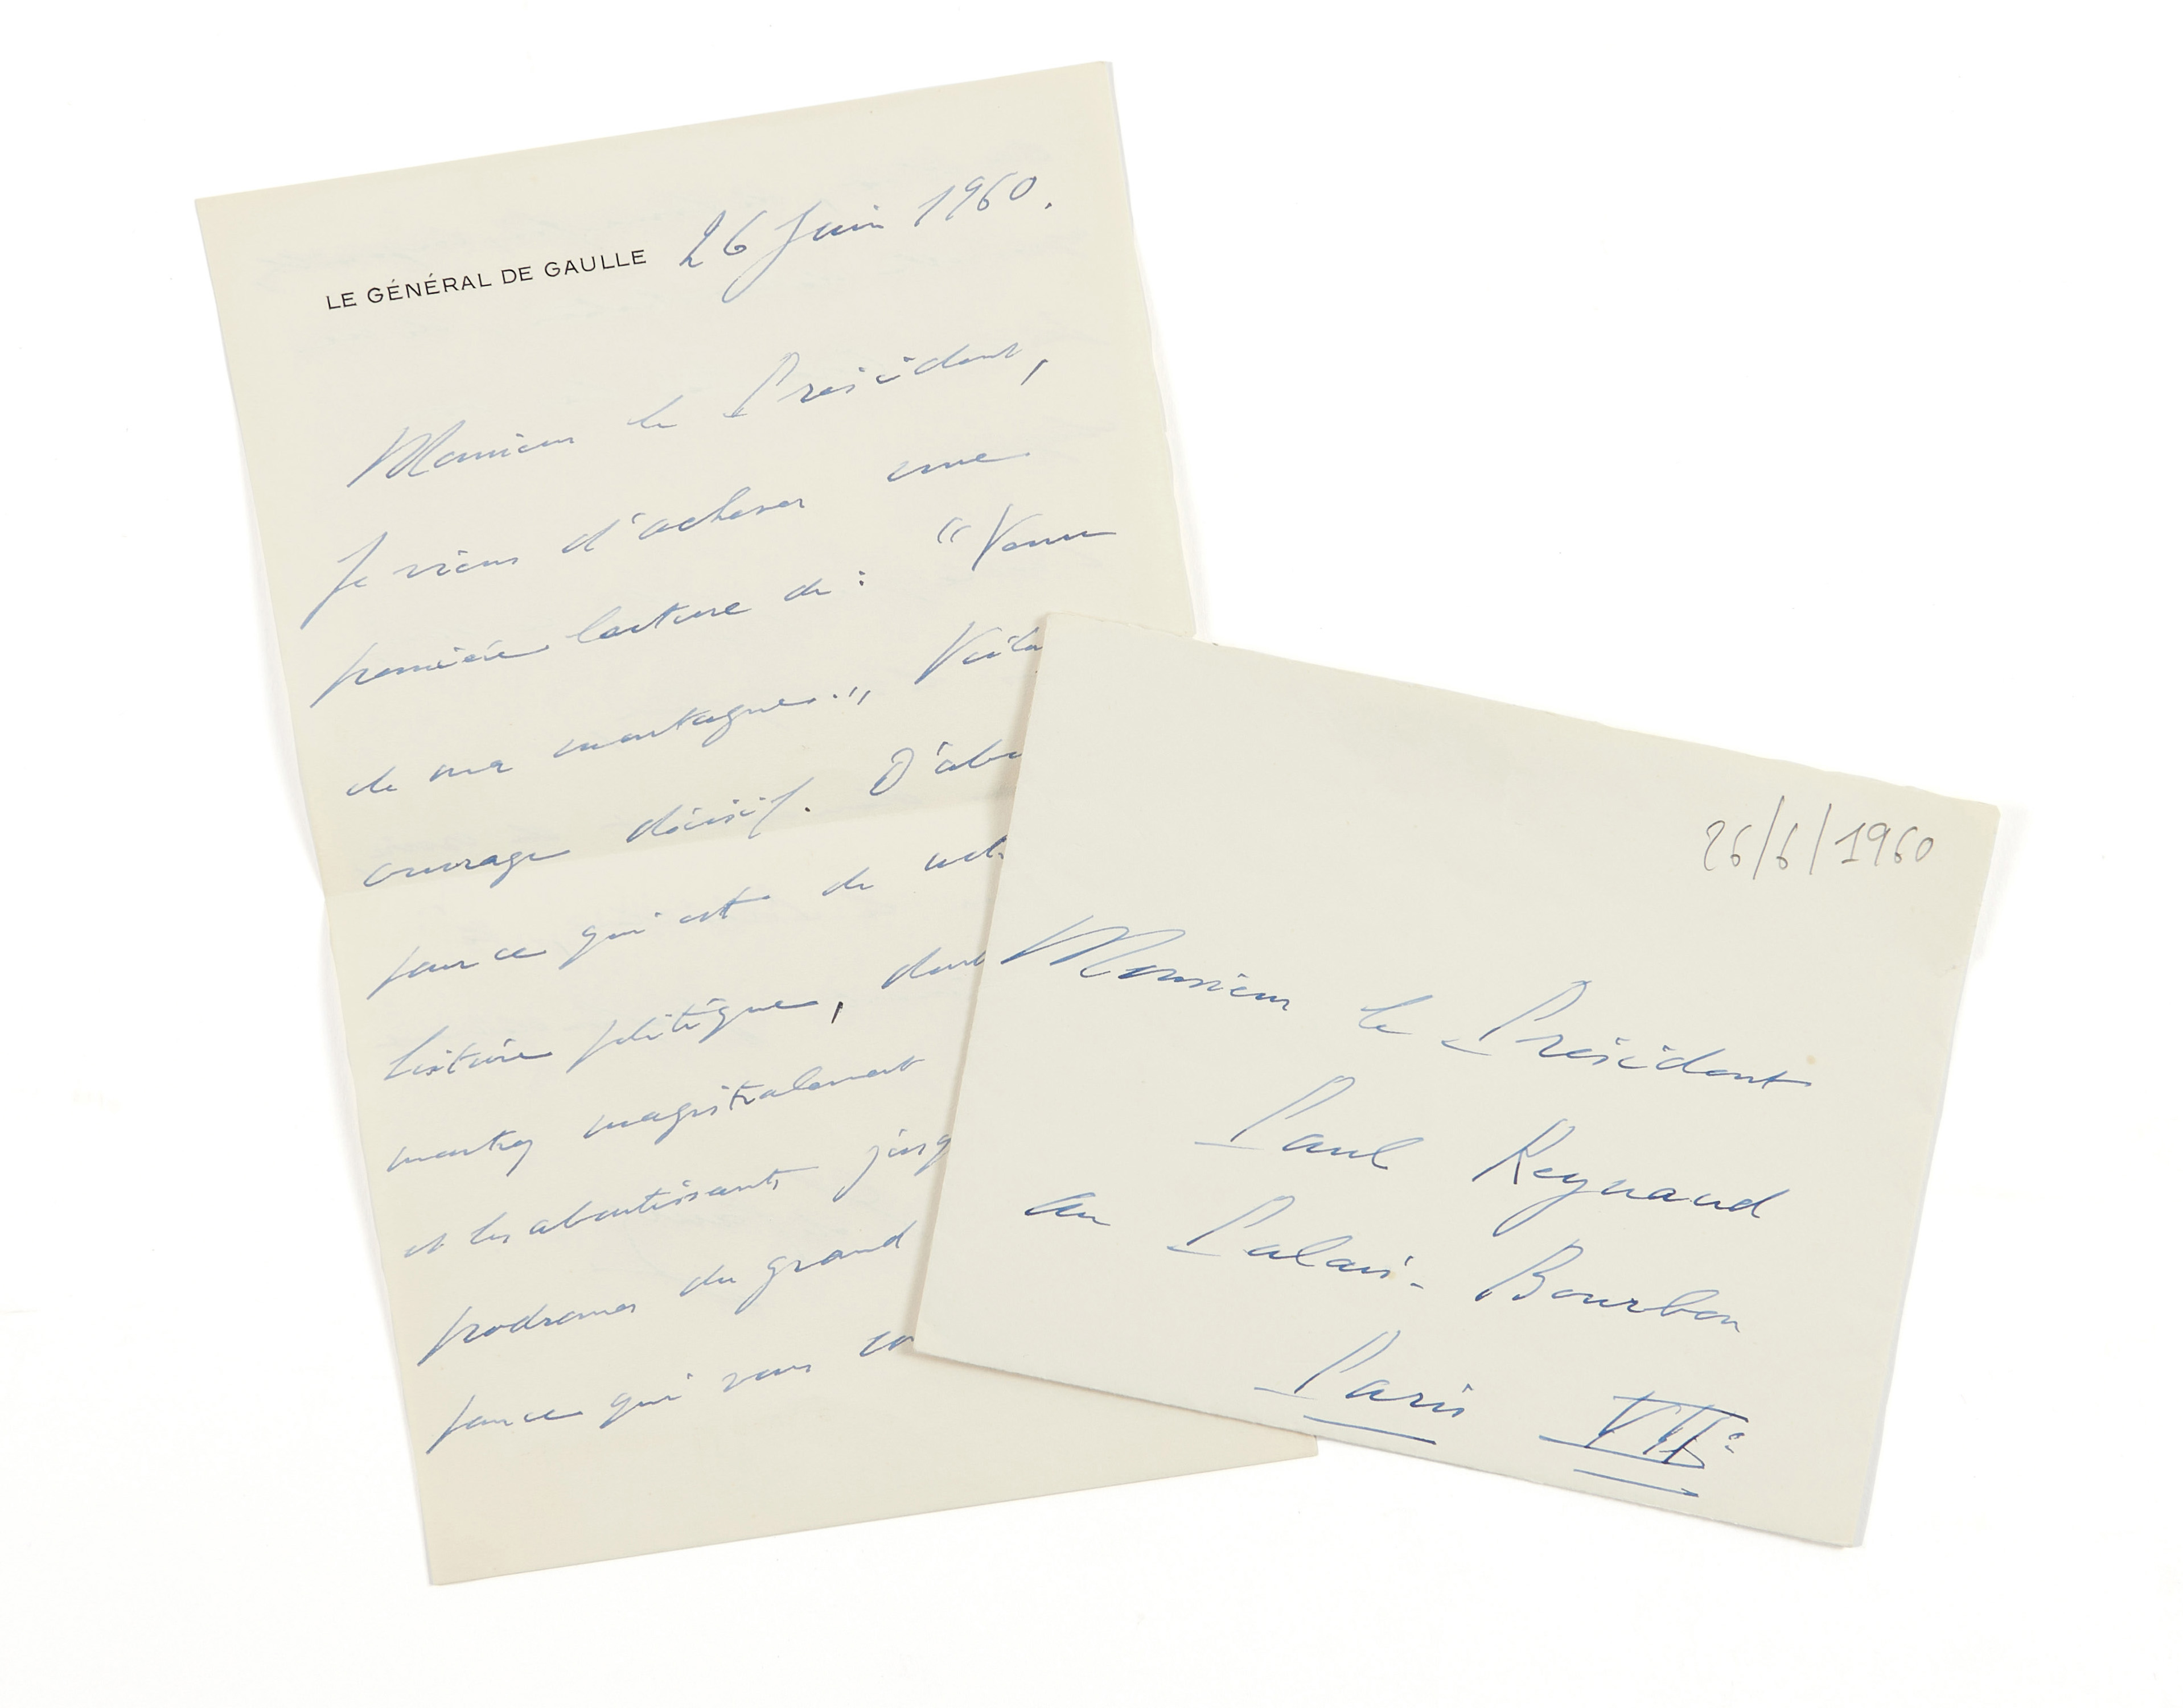 LE GÉNÉRAL DE GAULLE 26 Juin 1960.
Monsieur le Président,
Je viens d'achever une
première lecture de : "Venu
de ma montagne.„ Voilà
ouvrage décisif. D'abo
pour ce qui est de
histoire politique, dont
montrez magistralement
et les aboutissants jusq
prodromes du grand
pour ce qui vous co
26/6/1960
Monsieur le Président
Paul Reynaud
au Palais-Bourbon
Paris VIIè